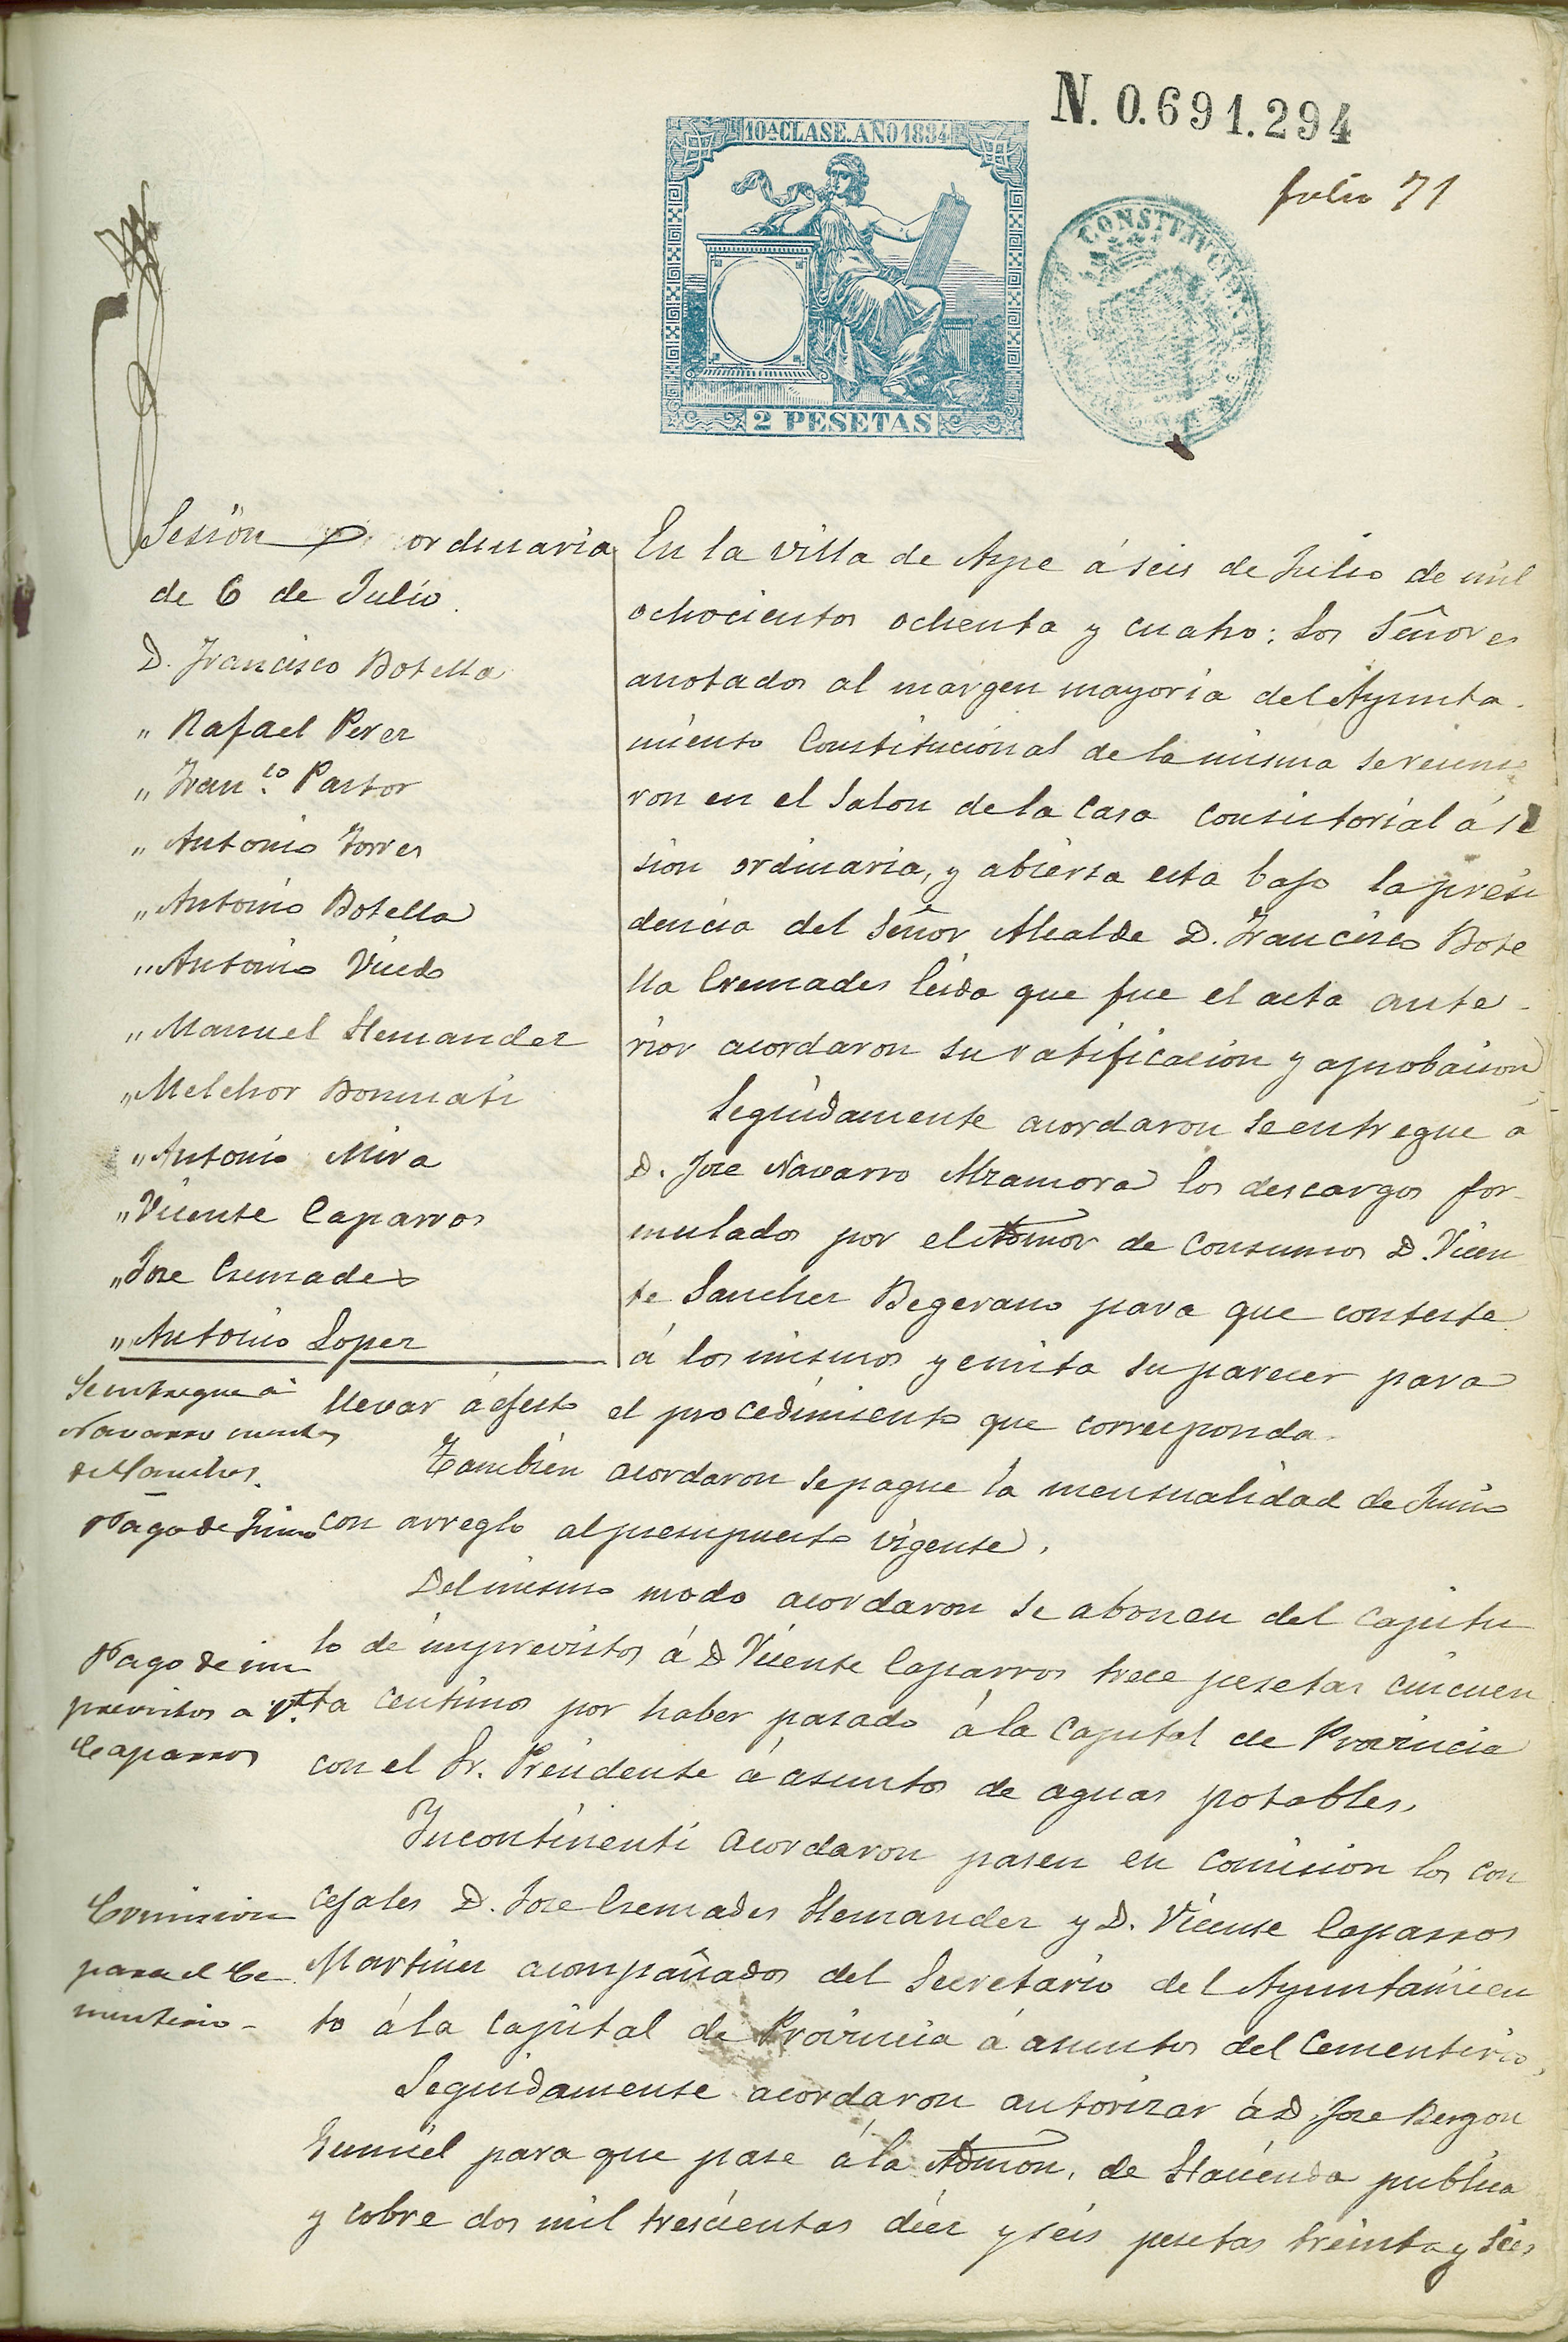 N. 0.691.294
10ª CLASE. AÑO 1884
folio 71
CONSTITUCIONAL
2 PESETAS
Sesión ordinaria
de 6 de Julio.
D. Francisco Botella
" Rafael Perez
" Fran.co Pastor
" Antonio Torres
" Antonio Botella
" Antonio Vicedo
" Manuel Hernandez
" Melchor Bonmati
" Antonio Mira
" Vicente Caparros
" Jose Cremades
" Antonio Lopez
En la villa de Aspe á seis de Julio de mil
ochocientos ochenta y cuatro: Los Señores
anotados al margen mayoria del Ayunta-
miento Constitucional de la misma se reunie
ron en el Salon de la Casa Consistorial á se
sion ordinaria, y abierta esta bajo la presi
dencia del Señor Alcalde D. Francisco Bote
lla Cremades leida que fue el acta ante-
rior acordaron su ratificacion y aprobacion
Seguidamente acordaron se entregue á
D. Jose Navarro Alzamora los descargos for-
mulados por el Admor de Consumos D. Vicen
te Sanchez Begerano para que conteste
á los mismos y emita su parecer para
llevar á efecto el procedimiento que corresponda.
Tambien acordaron se pague la mensualidad de Junio
con arreglo al presupuesto vigente.
Del mismo modo acordaron se abonen del Capitu
lo de imprevistos á D Vicente Caparros trece pesetas cincuen
ta centimos por haber pasado á la Capital de Provincia
con el Sr. Presidente á asuntos de aguas potables.
Incontinenti acordaron pasen en comision los con
cejales D. Jose Cremades Hernandez y D. Vicente Caparros
Martinez acompañados del Secretario del Ayuntamien
to á la Capital de Provincia á asuntos del Cementerio.
Seguidamente acordaron autorizar á D. Jose Berzon
Gumiel para que pase á la Admon. de Hacienda publica
y cobre dos mil trescientas diez y seis pesetas treinta y seis
Se entregue á
Navarro cuentas
de Sanchez.
Pago de Junio
Pago de im
previstos a Vte.
Caparros
Comision
para el Ce
menterio-